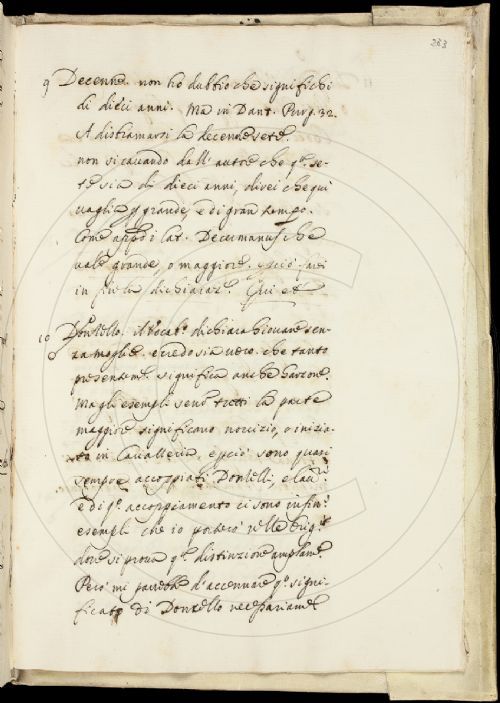 263
9 Decenne. non ho dubbio che significhi
di dieci anni. Ma in Dant. Purg. 32.
A disbramarsi la decenne sete.
non si cavando dall' autore che q.ª se-
te sia di dieci anni, direi che qui
vaglia grande, e di gran tempo.
Come app.º i Lat. Decumanus che
vale grande, o maggiore.
in dichiaraz.e Qui et
10 Donzello. Il Vocab.º dichiara Giovane sen-
za moglie. e credo sia vero. che tanto
presentem.e significa anche Garzone.
Ma gli esempli sono tratti la parte
maggiore significano novizio, o inizia-
to in Cavalleria, e perciò sono quasi
sempre accoppiati Donzelli, e Cav.ri
e di q.º accoppiamento ci sono infin.ti
esempli che io porterò nelle Orig.i
dove si prova q.ª distinzione amplam.e
Però mi parrebbe d'accennare q.º signi-
ficato di Donzello necessariam.e